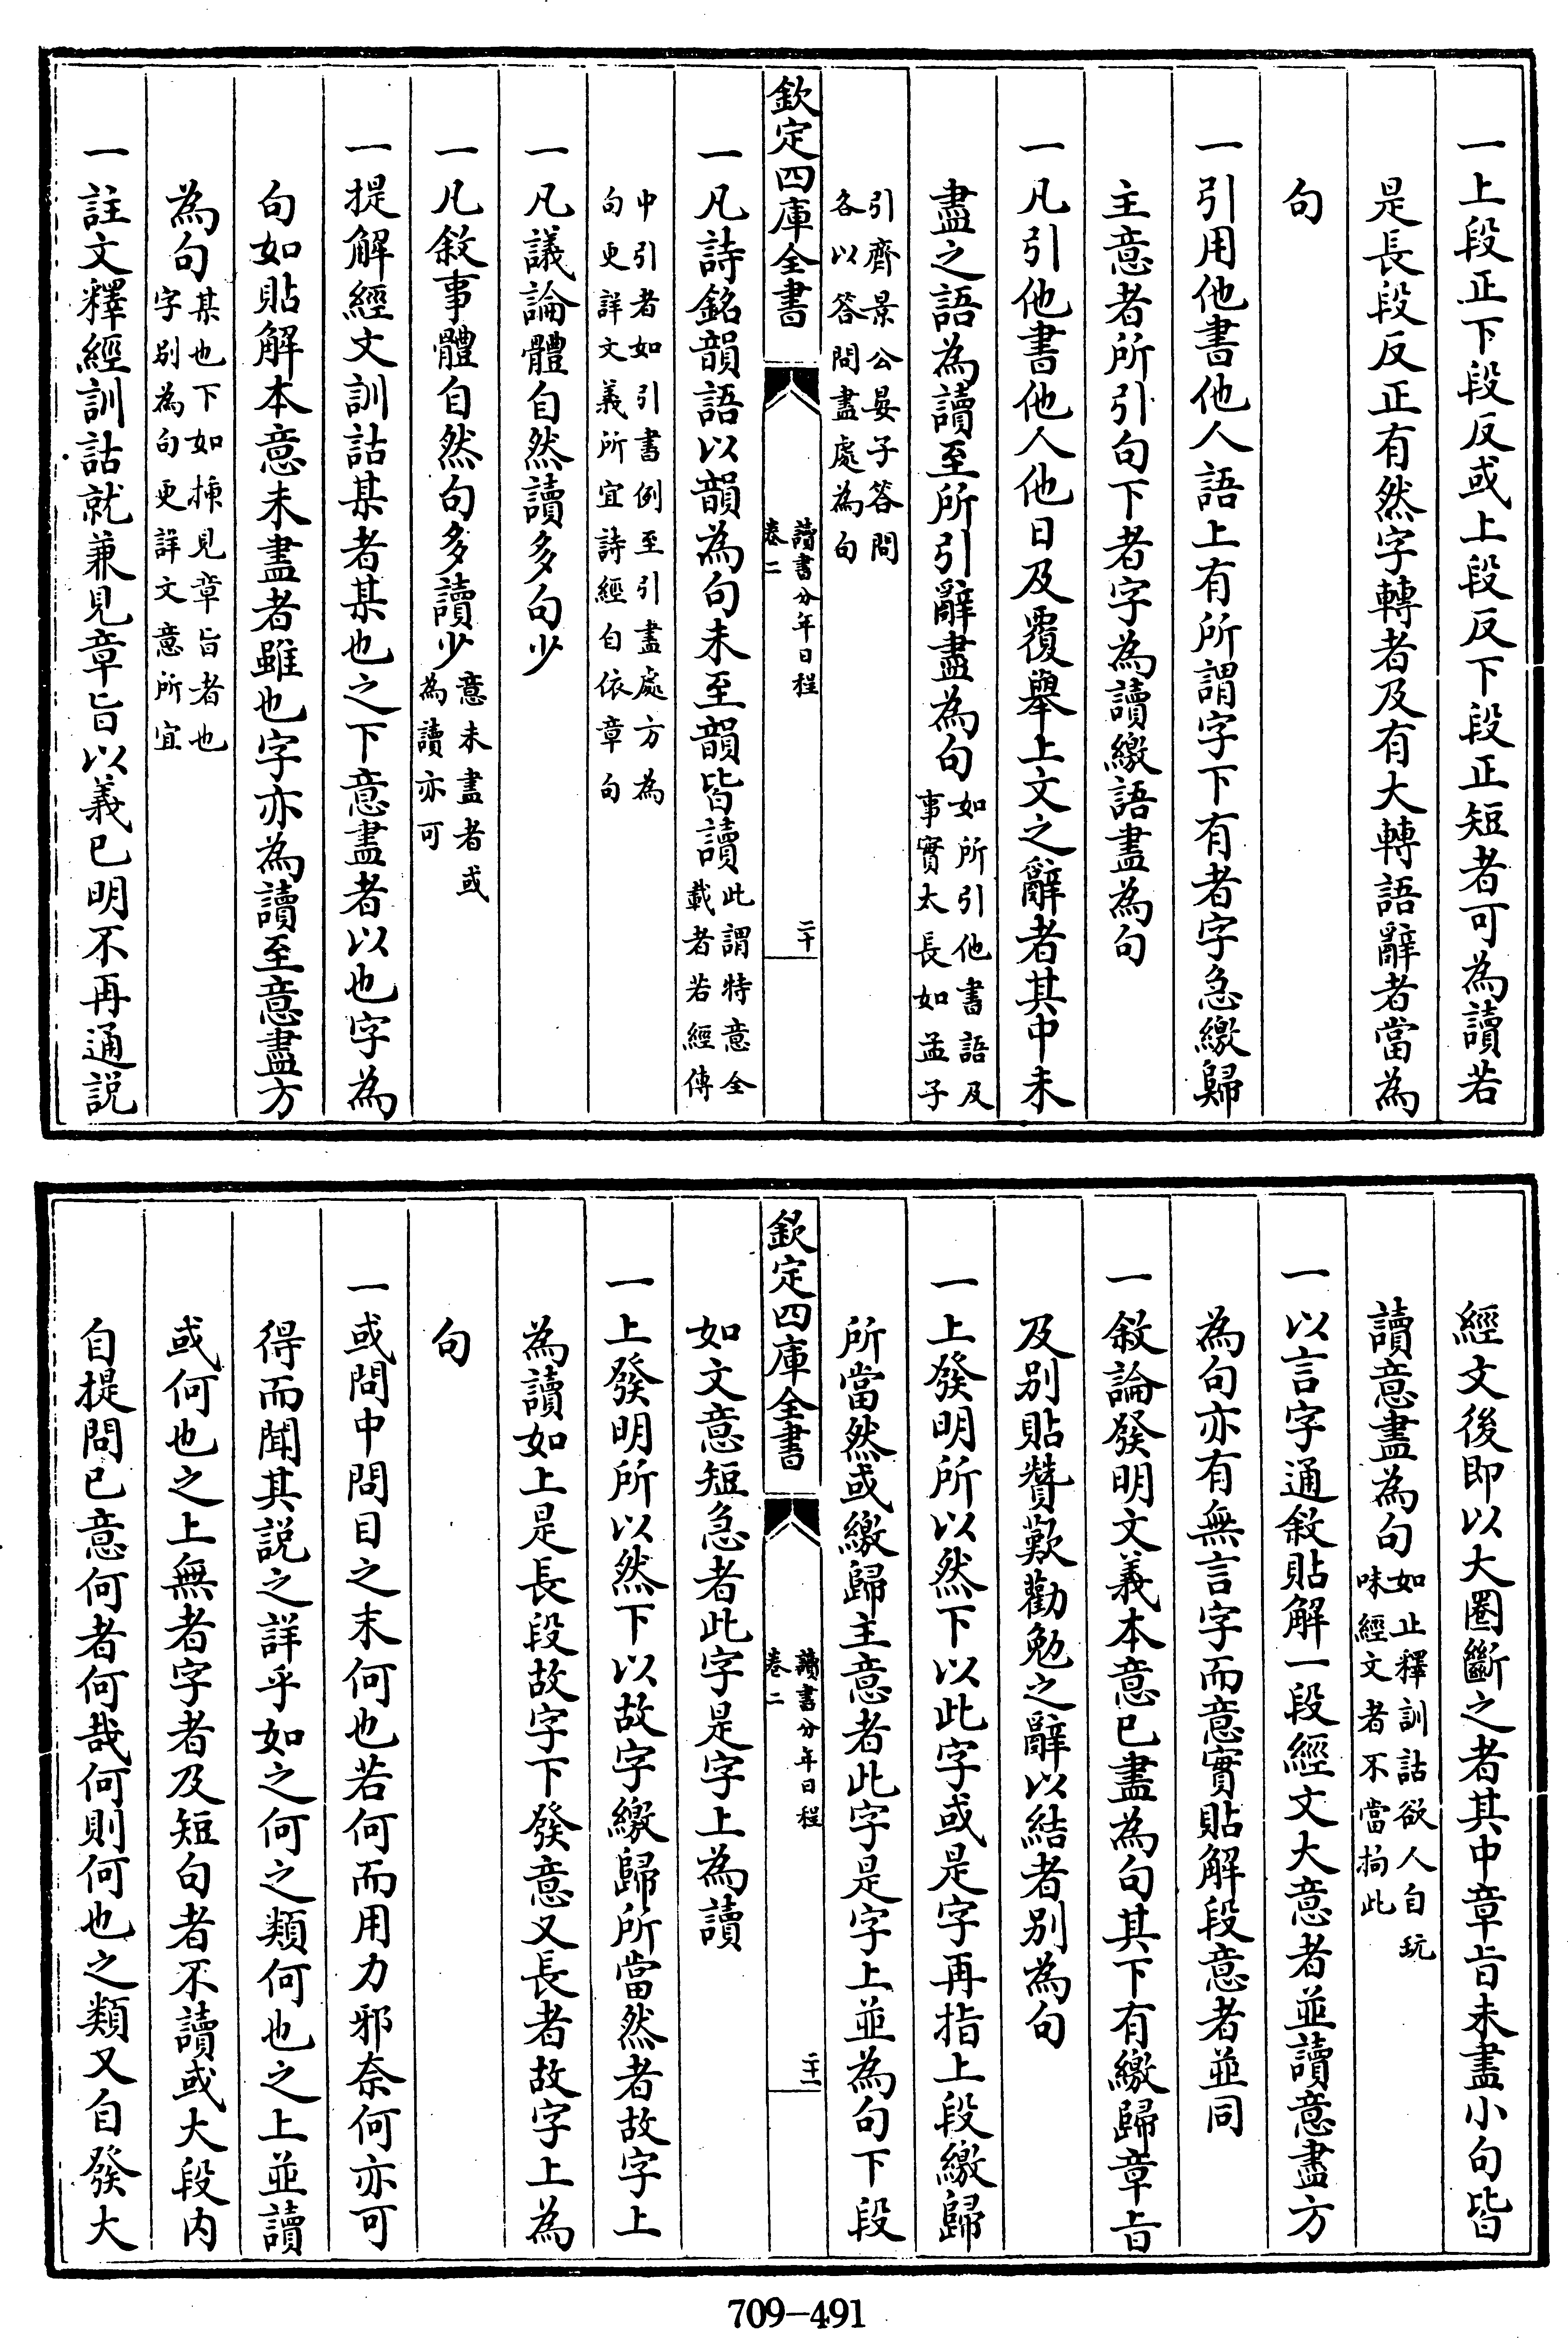 一上段正下段反或上段反下段正短者可為讀若
是長段反正有然字轉者及有大轉語辭者當為
句
一引用他書他人語上有所謂字下有者字急繳歸
主意者所引句下者字為讀繳語盡為句
一凡引他書他人他日及覆舉上文之辭者其中未
盡之語為讀至所引辭盡為句如所引他書語及
事實太長如孟子
引齊景公晏子答問
各以答問盡處為句
欽定四庫全書
讀書分年日程
卷二
二十
一凡詩銘韻語以韻為句未至韻皆讀此謂特意全
載者若經傳
中引者如引書例至引盡處方為
句更詳文義所宜詩經自依章句
一凡議論體自然讀多句少
一凡敘事體自然句多讀少意未盡者或
為讀亦可
一提解經文訓詁某者某也之下意盡者以也字為
句如貼解本意未盡者雖也字亦為讀至意盡方
為句某也下如揀見章旨者也
字別為句更詳文意所宜
一註文釋經訓詁就兼見章旨以義已明不再通説
經文後即以大圏斷之者其中章旨未盡小句皆
讀意盡為句如止釋訓詁欲人自玩
味經文者不當拘此
一以言字通敘貼解一段經文大意者並讀意盡方
為句亦有無言字而意實貼解段意者並同
一敘論發明文義本意已盡為句其下有繳歸章旨
及別貼贊歎勸勉之辭以結者別為句
一上發明所以然下以此字或是字再指上段繳歸
所當然或繳歸主意者此字是字上並為句下段
欽定四庫全書
讀書分年日程
卷二
二十一
如文意短急者此字是字上為讀
一上發明所以然下以故字繳歸所當然者故字上
為讀如上是長段故字下發意又長者故字上為
句
一或問中問目之末何也若何而用力邪奈何亦可
得而聞其説之詳乎如之何之類何也之上並讀
或何也之上無者字者及短句者不讀或大段内
自提問已意何者何哉何則何也之類又自發大
709-491